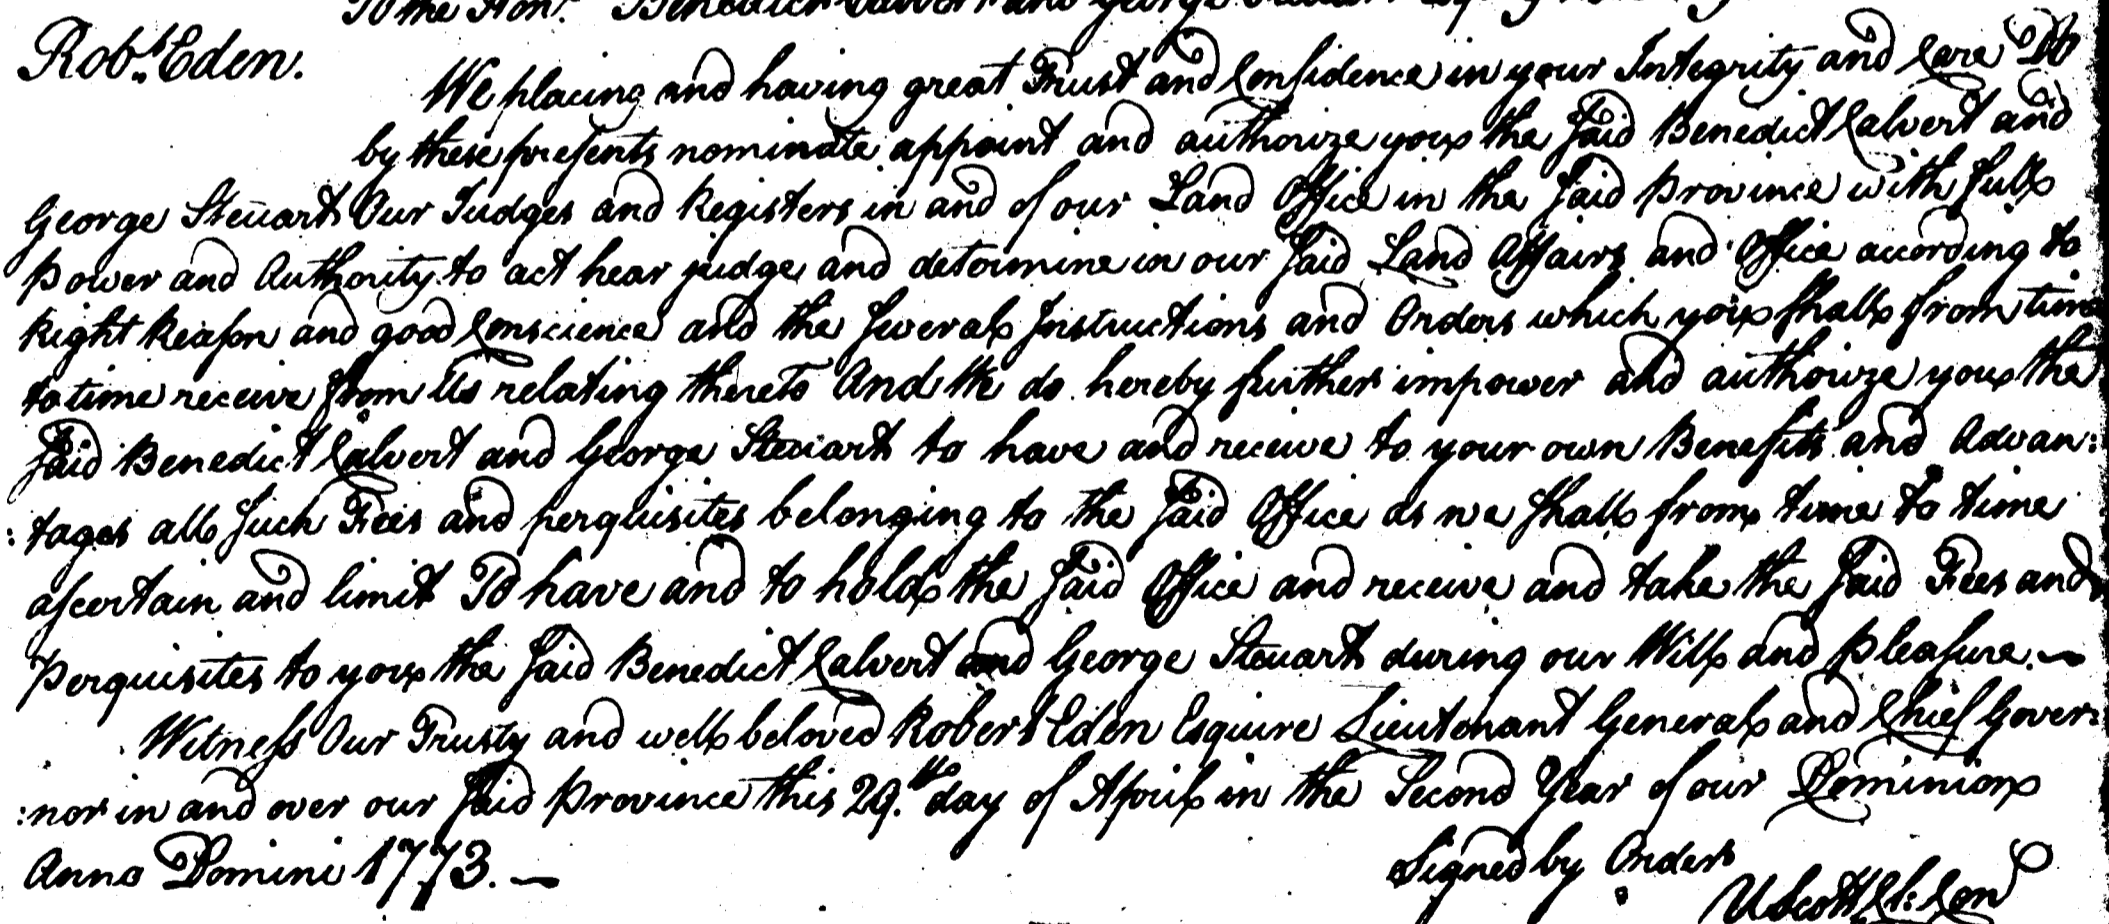 To the Honr. Benedict Calvert and George Steuart
Robt. Eden.
We placing and having great Trust and Confidence in your Integrity and Care Do
by these presents nominate appoint and authorize you the said Benedict Calvert and
George Steuart Our Judges and Registers in and of our Land Office in the said Province with full
Power and Authority to act hear judge and determine in our said Land Affairs and Office according to
Right Reason and good Conscience and the several Instructions and Orders which you shall from time
to time receive from Us relating thereto And We do hereby further impower and authorize you the
said Benedict Calvert and George Steuart to have and receive to your own Benefits and Advan:
:tages all such Fees and perquisites belonging to the said Office as we shall from time to time
ascertain and limit To have and to hold the said Office and receive and take the said Fees and
Perquisites to you the said Benedict Calvert and George Steuart during our Will and Pleasure.—
Witness Our Trusty and well beloved Robert Eden Esquire Lieutenant General and Chief Gover:
:nor in and over our said Province this 29.th day of April in the Second Year of our Dominion
Anno Domini 1773.—
Signed by Order
U Scott Cl: Con